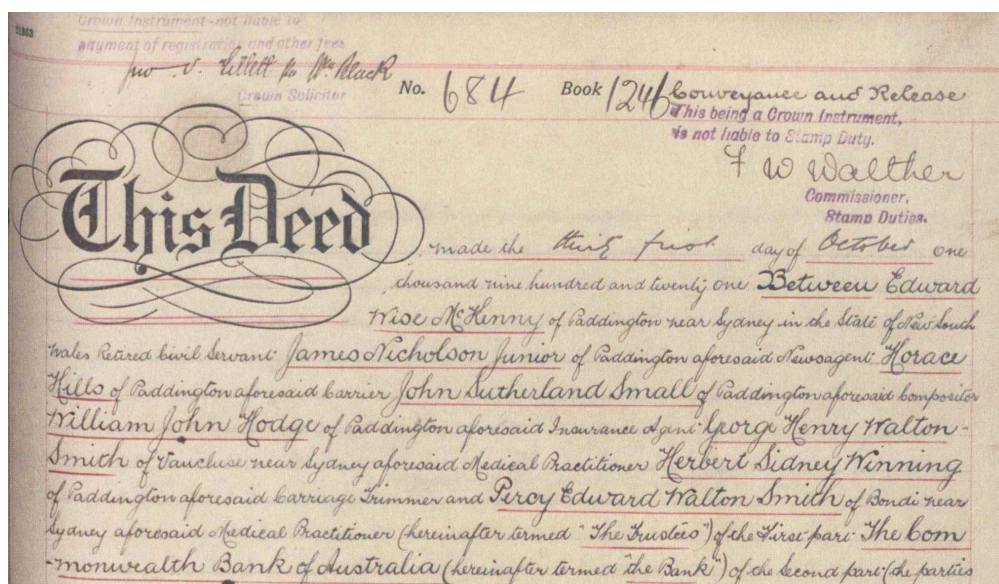 Crown Instrument - not liable to
payment of registration and other fees
Crown Solicitor
No. 684 Book 1246 Conveyance and Release
This being a Crown Instrument,
is not liable to Stamp Duty.
F W Walther
Commissioner,
Stamp Duties.
This Deed
made the thirty first day of October one
thousand nine hundred and twenty one Between Edward
Wise McHenny of Paddington near Sydney in the State of New South
Wales Retired Civil Servant James Nicholson Junior of Paddington aforesaid Newsagent Horace
Hills of Paddington aforesaid Carrier John Sutherland Small of Paddington aforesaid Compositor
William John Hodge of Paddington aforesaid Insurance Agent George Henry Walton-
Smith of Vaucluse near Sydney aforesaid Medical Practitioner Herbert Sidney Winning
of Paddington aforesaid Carriage Trimmer and Percy Edward Walton Smith of Bondi near
Sydney aforesaid Medical Practitioner (hereinafter termed "The Trustees") of the First part The Com
-monwealth Bank of Australia (hereinafter termed "the Bank") of the Second part (the parties